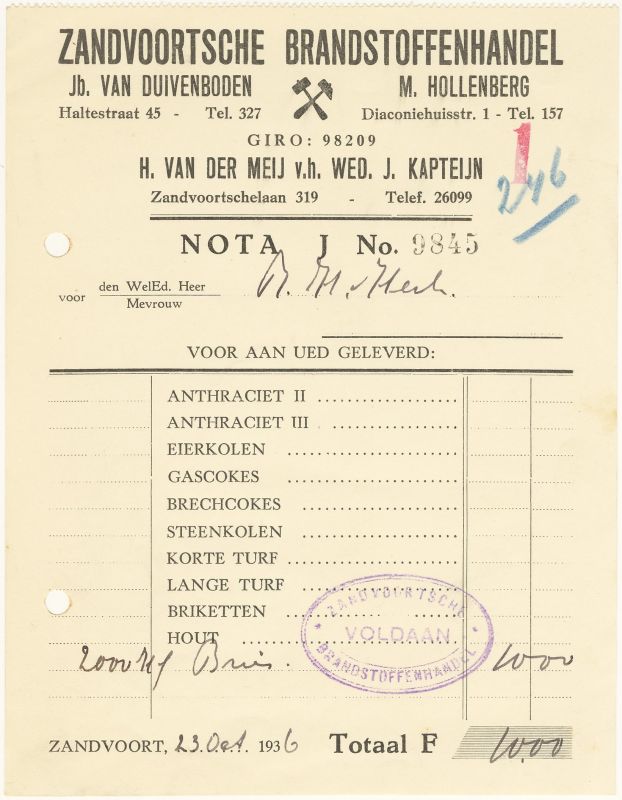 ZANDVOORTSCHE BRANDSTOFFENHANDEL
Jb. VAN DUIVENBODEN M. HOLLENBERG
Haltestraat 45 - Tel. 327 Diaconiehuisstr. 1 - Tel. 157
GIRO: 98209
1
H. VAN DER MEIJ v.h. WED. J. KAPTEIJN
246
Zandvoortschelaan 319 - Telef. 26099
NOTA J No. 9845
voor den WelEd. Heer
Mevrouw
VOOR AAN UED GELEVERD:
ANTHRACIET II
ANTHRACIET III
EIERKOLEN
GASCOKES
BRECHCOKES
STEENKOLEN
KORTE TURF
LANGE TURF
BRIKETTEN
HOUT
ZANDVOORTSCHE
VOLDAAN
BRANDSTOFFENHANDEL
2000 1000
ZANDVOORT, 23 Oct. 1936 Totaal F 10.00